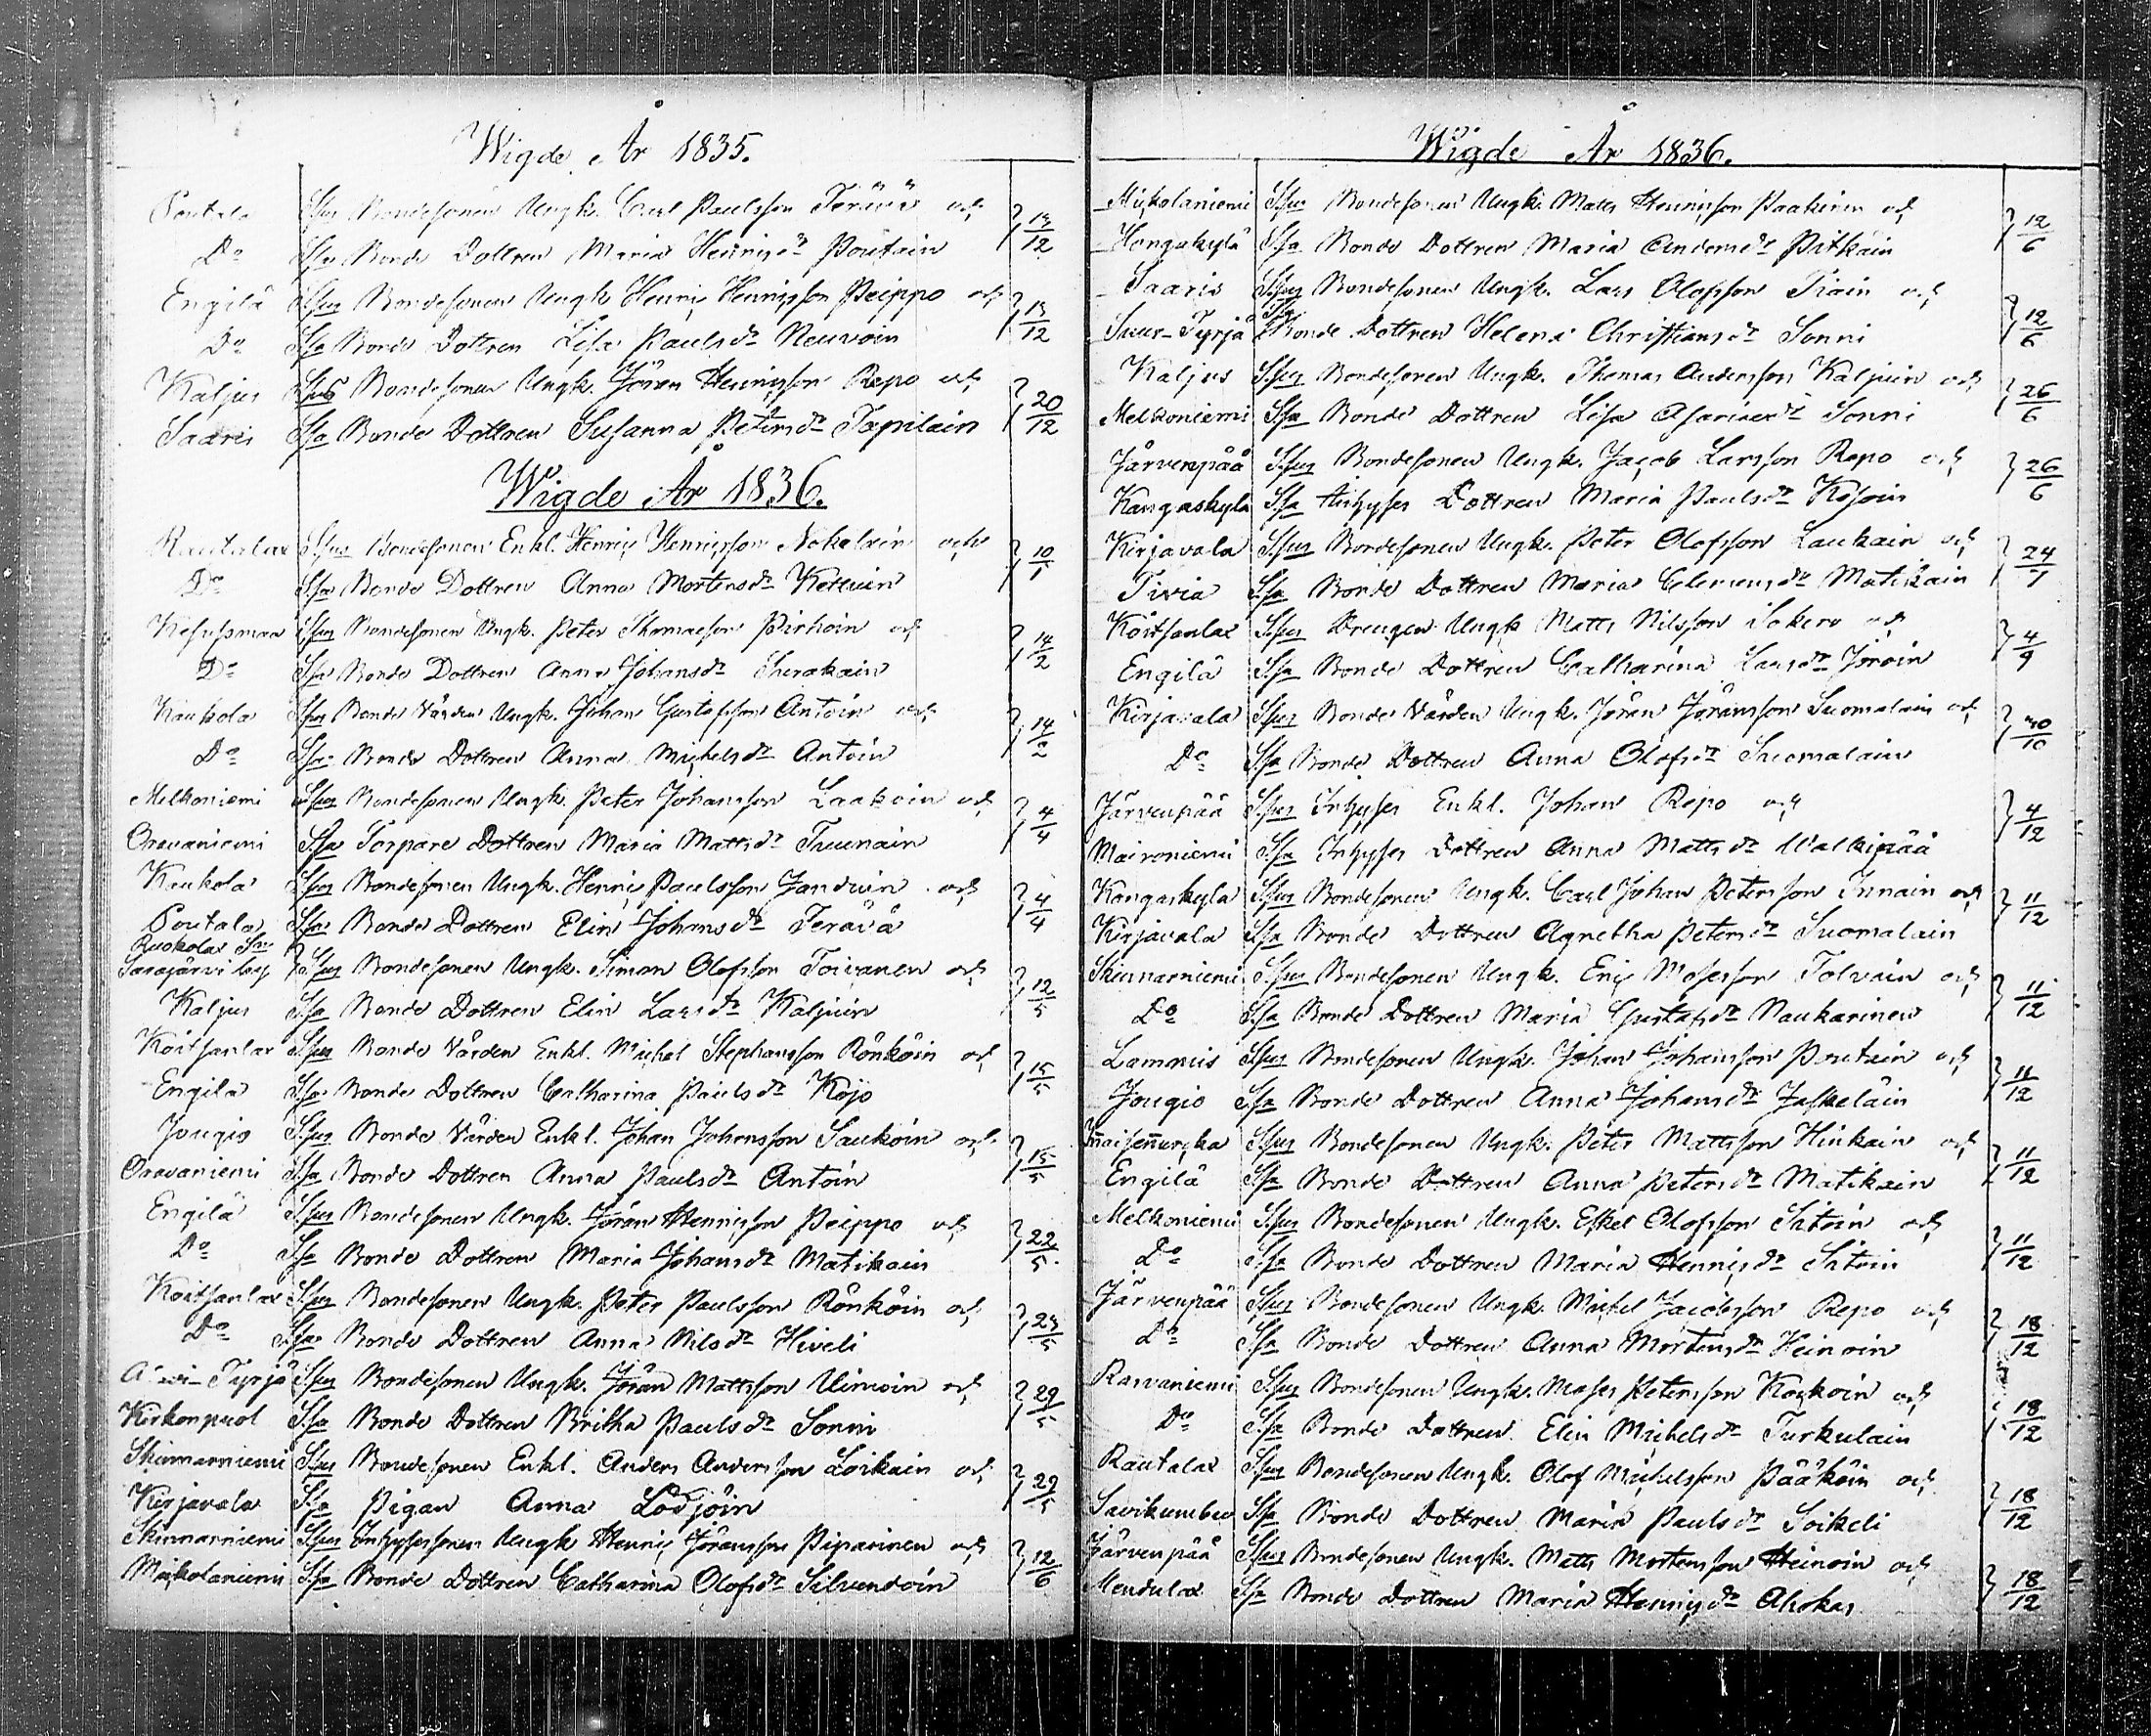 Wigde År 1835.
Poutala Spus Bondesonen Ungk. Carl Paulsson Terävä och
Do Spa Bonde Dottren Maria Henricsdr Poutain 13/12
Engilä Spus Bondesonen Ungk. Henric Henricsson Peippo och
Do Spa Bonde Dottren Lisa Paulsdr Neuvoin 13/12
Kaljus Spus Bondesonen Ungk. Jöran Henricsson Repo och
Saaris Spa Bonde Dottren Susanna Petersdr Tapilain 20/12
Wigde År 1836.
Rautalax Spus Bondesonen Enkl. Henric Henricsson Nokelain och
Do Spa Bonde Dottren Anna Mortensdr Kettuin 10/1
Kesusmaa Spus Bondesonen Ungk. Peter Thomasson Pirhoin och
Do Spa Bonde Dottren Anna Johansdr 14/2
Kaukola Spus Bonde Vården Ungk. Johan Gustafsson Antoin och
Do Spa Bonde Dottren Anna Michelsdr Antoin 14/2
Melkoniemi Spus Bondesonen Ungk. Peter Johansson Laakoin och
Oravaniemi Spa Torpare Dottren Maria Mattsdr Tuunain 4/4
Kaukola Spus Bondesonen Ungk. Henric Paulsson Janduin och
Poutala Spa Bonde Dottren Elin Johansdr Terävä 4/4
Ruokolax Sn
Sarajärvi by Spus Bondesonen Ungk. Simon Olofsson Toivanen och
Kaljus Spa Bonde Dottren Elin Larsdr Kaljuin 12/5
Koitsanlax Spus Bonde Vården Enkl. Michel Stephansson Rönköin och
Engilä Spa Bonde Dottren Catharina Paulsdr Kojo 15/5
Jougio Spus Bonde Vården Enkl. Johan Johansson Saukoin och
Oravaniemi Spa Bonde Dottren Anna Paulsdr Antoin 15/5
Engilä Spus Bondesonen Ungk. Jöran Henricsson Peippo och
Do Spa Bonde Dottren Maria Johansdr Matikain 22/5
Koitsanlax Spus Bondesonen Ungk. Peter Paulsson Rönköin och
Do Spa Bonde Dottren Anna Nilsdr Hiveli 23/5
Tyrjä Spus Bondesonen Ungk. Jöran Mattsson Uimoin och
Kirkonpuol Spa Bonde Dottren Britha Paulsdr Sonni 29/5
Skinnarniemi Spus Bondesonen Enkl. Anders Andersson Loikain och
Kirjavala Spa Pigan Anna Lodjöin 29/5
Skinnarniemi Spus Inhysessonen Ungk. Henric Jöransson Piparinen och
Mickolaniemi Spa Bonde Dottren Catharina Olofsdr Silvendoin 12/6
Wigde År 1836.
Mickolaniemi Spus Bondesonen Ungk. Matts Henricsson Paakinen och
Hongakylä Spa Bonde Dottren Maria Andersdr Pitkäin 12/6
Saaris Spus Bondesonen Ungk. Lars Olofsson Tiain och
Suur-Tyrjä Spa Bonde Dottren Helena Christiansdr Sonni 12/6
Kaljus Spus Bondesonen Ungk. Thomas Andersson Kaljuin och
Melkoniemi Spa Bonde Dottren Lisa Asariaedr Sonni 26/6
Järvenpää Spus Bondesonen Ungk. Jacob Larsson Repo och
Kangaskylä Spa Inhyses Dottren Maria Paulsdr Kosoin 26/6
Kirjavala Spus Bondesonen Ungk. Peter Olofsson Laukain och
Tivia Spa Bonde Dottren Maria Clemensdr Matikain 24/7
Koitsanlax Spus Drengen Ungk. Matts Nilsson Sokero och
Engilä Spa Bonde Dottren Catharina Larsdr Joroin 4/9
Kirjavala Spus Bonde Vården Ungk. Jöran Jöransson Suomalain och
Do Spa Bonde Dottren Anna Olofsdr Suomalain 30/10
Järvenpää Spus Inhyses Enkl. Johan Repo och
Maironiemi Spa Inhyses Dottren Anna Mattsdr Walkipää 4/12
Kangaskylä Spus Bondesonen Ungk. Carl Johan Petersson Innain och
Kirjavala Spa Bonde Dottren Agnetha Petersdr Suomalain 11/12
Skinnarniemi Spus Bondesonen Ungk. Eric Mosesson Tolvain och
Do Spa Bonde Dottren Maria Gustafsdr Naukarinen 11/12
Lammius Spus Bondesonen Ungk. Johan Johansson Poutain och
Jougio Spa Bonde Dottren Anna Johansdr Jaskeläin 11/12
Spus Bondesonen Ungk. Peter Mattsson Hinkain och
Engilä Spa Bonde Dottren Anna Petersdr Matikain 11/12
Melkoniemi Spus Bondesonen Ungk. Eskel Olofsson Sitoin och
Do Spa Bonde Dottren Maria Henricsdr Sitoin 11/12
Järvenpää Spus Bondesonen Ungk. Michel Jacobsson Repo och
Do Spa Bonde Dottren Anna Mortensdr Heinoin 18/12
Rasvaniemi Spus Bondesonen Ungk. Moses Petersson Kockoin och
Do Spa Bonde Dottren Elin Michelsdr Turkulain 18/12
Rautalax Spus Bondesonen Ungk. Olof Michelsson Pääköin och
Savikumbu Spa Bonde Dottren Maria Paulsdr Soikeli 18/12
Järvenpää Spus Bondesonen Ungk. Matts Mortensson Heinoin och
Mendulax Spa Bonde Dottren Maria Henricsdr Ahokas 18/12